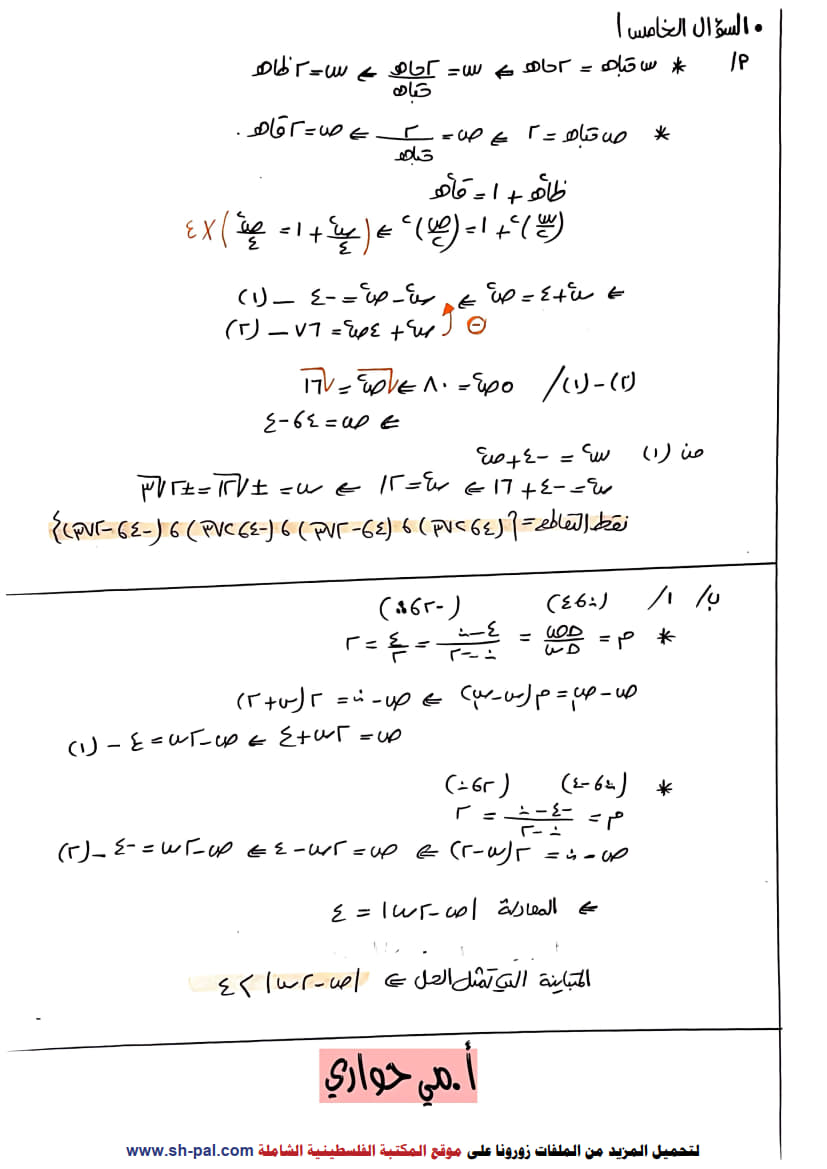 • السؤال الخامس
أ/ * س جتاهـ = ٢جاهـ ⇐ س = ٢جاهـ/جتاهـ ⇐ س = ٢ظاهـ
* ص جتاهـ = ٢ ⇐ ص = ٢/جتاهـ ⇐ ص = ٢قاهـ .
ظا²هـ + ١ = قا²هـ
(س/٢)² + ١ = (ص/٢)² ⇐ (س²/٤ + ١ = ص²/٤) ×٤
⇐ س² + ٤ = ص² ⇐ س² - ص² = -٤ — (١)
⊖ س² + ٤ص² = ٧٦ — (٢)
(٢) - (١) / ٥ص² = ٨٠ ⇐ √ص² = √١٦
⇐ ص = ٤ و -٤
من (١) س² = -٤ + ص²
س² = -٤ + ١٦ ⇐ س² = ١٢ ⇐ س = ±√١٢ = ±٢√٣
نقط التقاطع = {(٢√٣ و ٤) و (-٢√٣ و ٤) و (٢√٣ و -٤) و (-٢√٣ و -٤)}
ب/ ١/ (٠ و ٤) (-٢ و ٠)
* م = Δص/Δس = ٤-٠/٠--٢ = ٤/٢ = ٢
ص - ص₁ = م(س - س₁) ⇐ ص - ٠ = ٢(س + ٢)
ص = ٢س + ٤ ⇐ ص - ٢س = ٤ - (١)
* (٠ و -٤) (٢ و ٠)
م = -٤-٠/٠-٢ = ٢
ص - ٠ = ٢(س - ٢) ⇐ ص = ٢س - ٤ ⇐ ص - ٢س = -٤ - (٢)
⇐ المعادلة |ص - ٢س| = ٤
المتباينة التي تمثل الحل ⇐ |ص - ٢س| > ٤
أ.مي حواري
لتحميل المزيد من الملفات زورونا على موقع المكتبة الفلسطينية الشاملة www.sh-pal.com